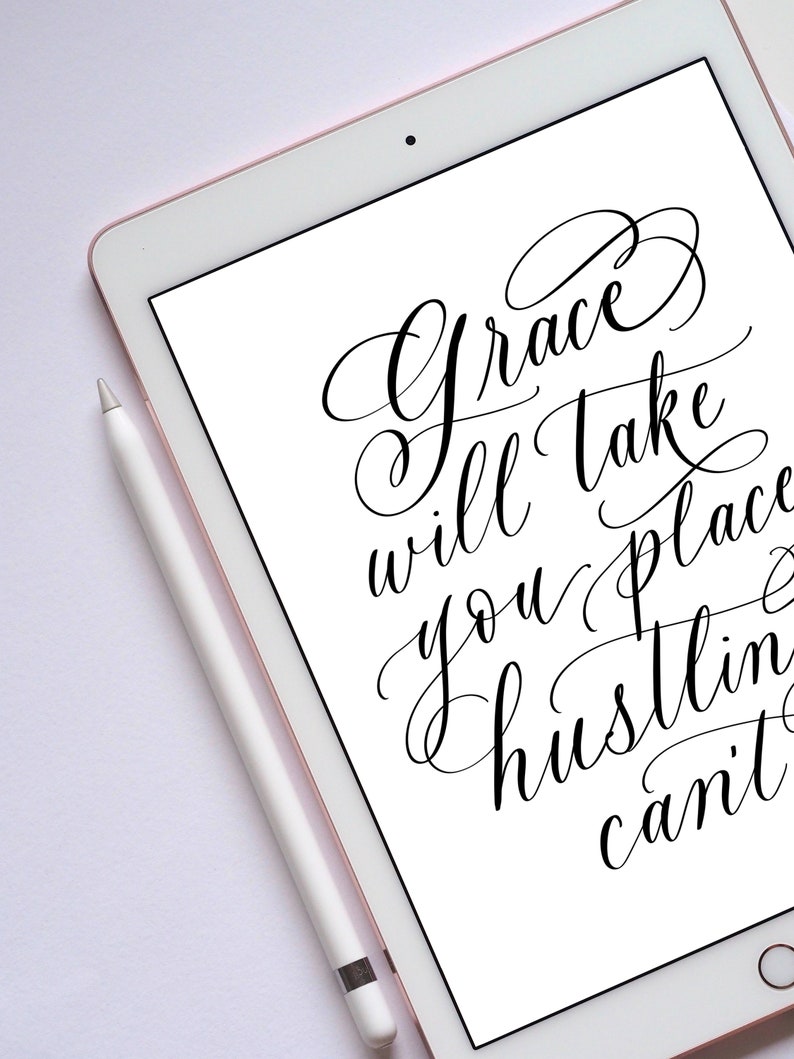 Grace
will take
you place
hustlin
can't